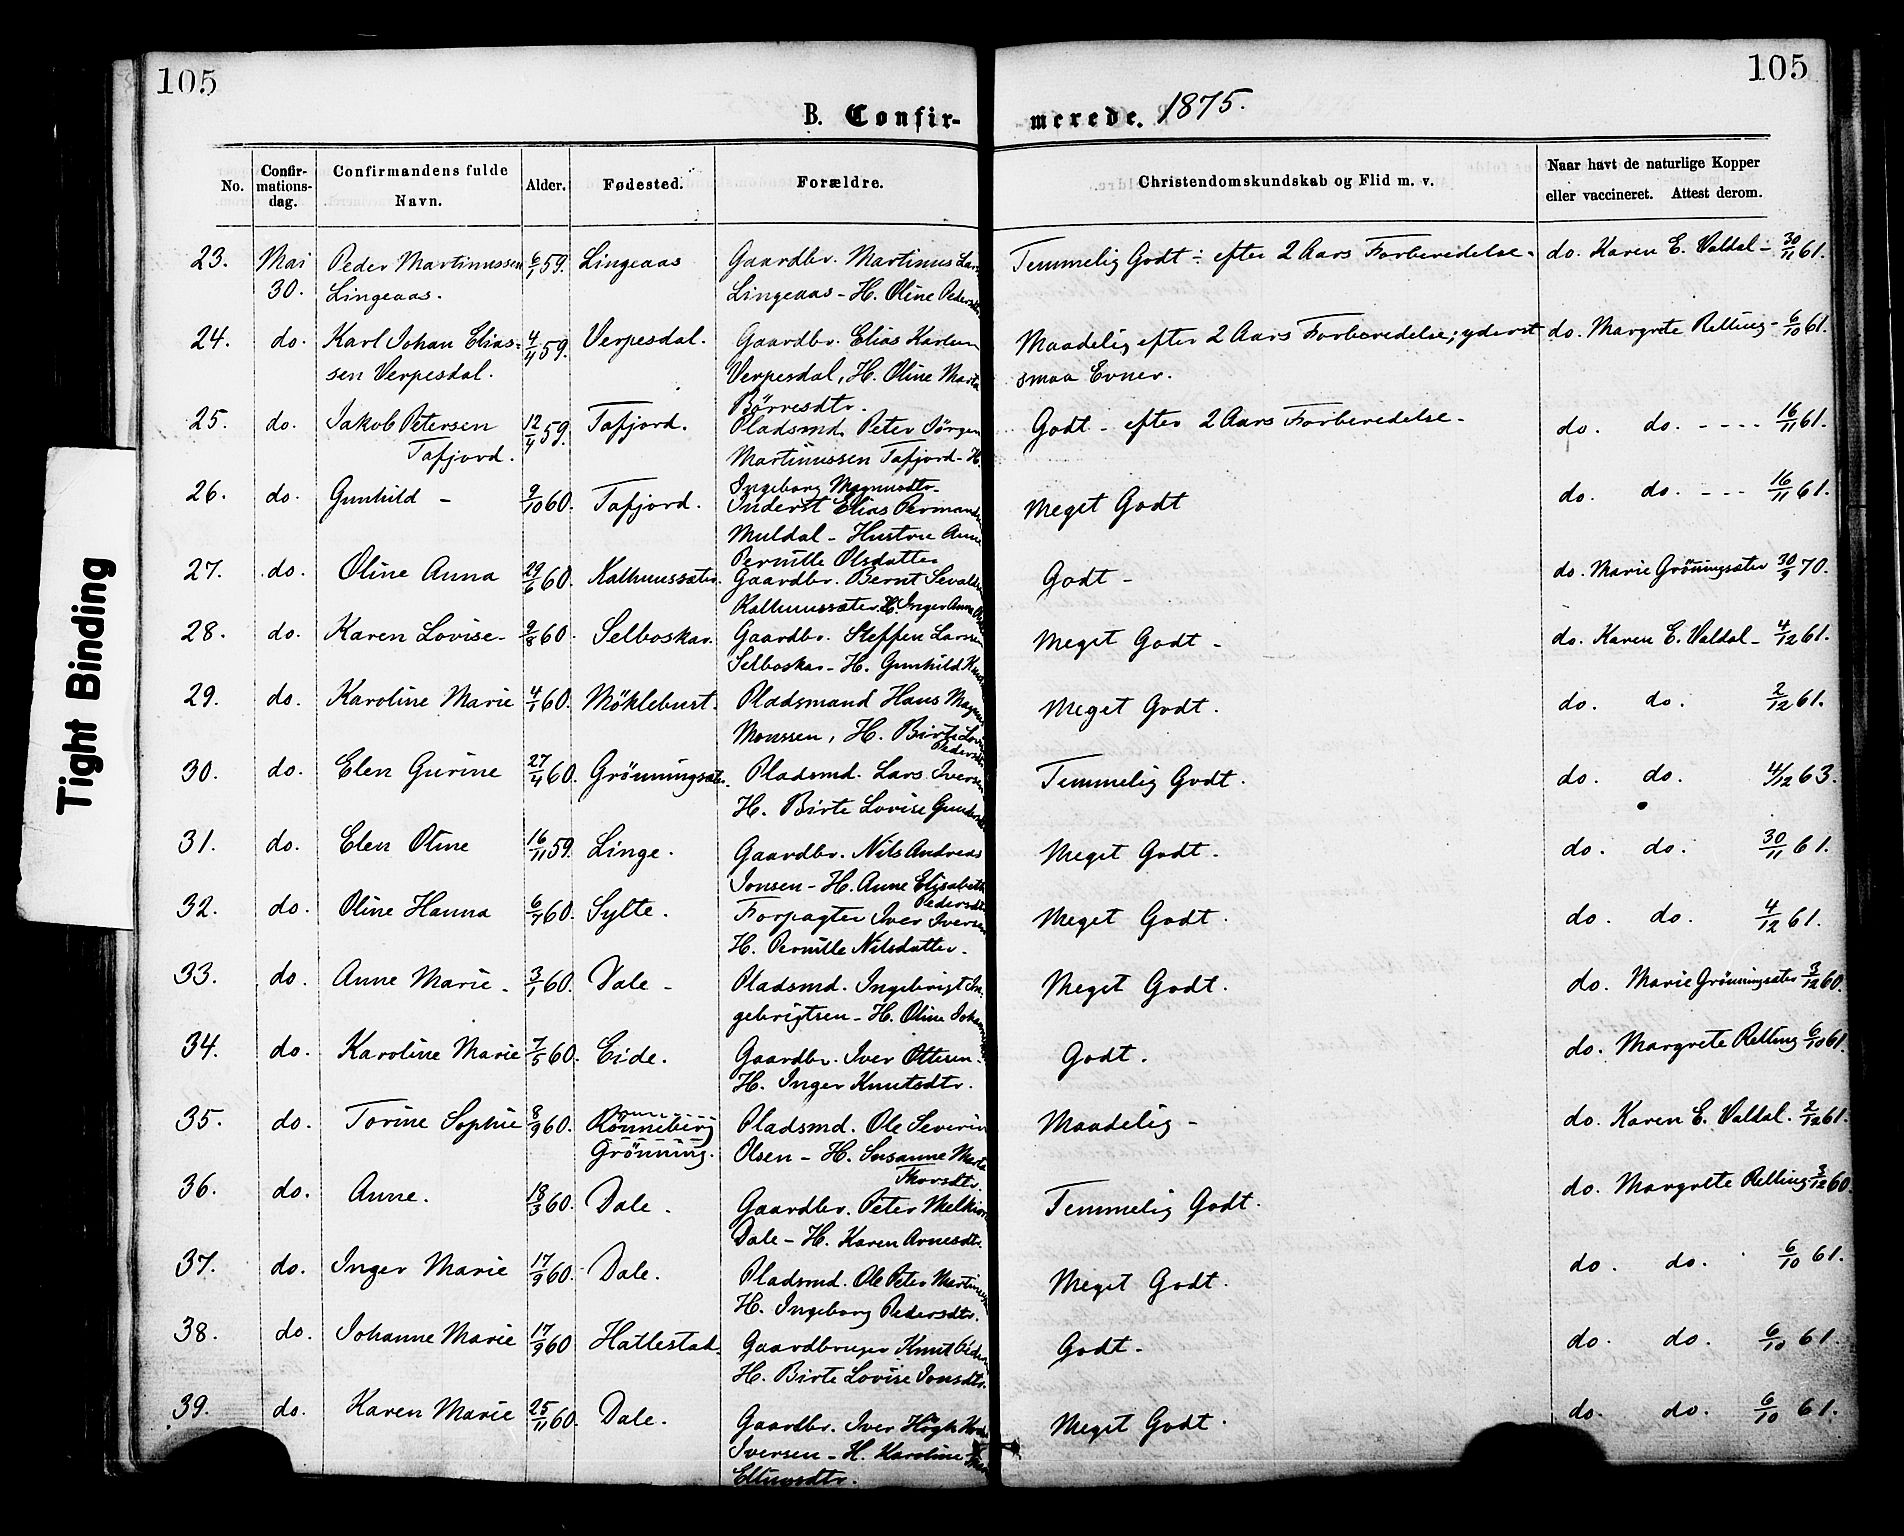 105
105
B. Confir-
merede. 1875.
No.
Confir-
mations-
dag.
Confirmandens fulde
Navn.
Alder.
Fødested.
Forældre.
Christendomskundskab og Flid m. v.
Naar havt de naturlige Kopper
eller vaccineret. Attest derom.
23. Mai Peder Martinussen 6/1 59. Lingeaas Gaardbr. Martinus Temmelig Godt ÷ efter 2 Aars Forberedelse. do. Karen E. Valdal - 30/11 61.
30. Lingeaas. Lingeaas - H. Oline
24. do. Karl Johan Elias= 4/4 59. Verpesdal. Gaardbr. Elias Karlsen Maadelig efter 2 Aars Forberedelse; yderst do. Margrete Relling - 6/10 61.
sen Verpesdal. Verpesdal, H. Oline Marta smaa Evner.
Börresdtr.
25. do. Jakob Petersen 12/4 59. Tafjord. Pladsmd. Peter Jörgen Godt - efter 2 Aars Forberedelse - do. do. - - - - 16/11 61.
Tafjord. Martinussen Tafjord - H.
Ingeborg Magnusdtr.
26. do. Gunhild - 9/10 60. Tafjord. Inderst Elias Meget Godt do. do. - - - 16/11 61.
Muldal - Hustru Anne
Pernille Olsdatter
27. do. Oline Anna 29/6 60. Kalhussæter. Gaardbr. Bernt Godt - do. Marie Grönningsæter 30/9 70.
Kalhussæter. H. Inger Anne
28. do. Karen Lovise - 9/8 60. Selboskar. Gaardbr. Steffen Larsen Meget Godt - do. Karen E. Valdal - 4/12 61.
Selboskar - H. Gunhild
29. do. Karoline Marie 4/1 60. Möklebust. Pladsmand Hans Meget Godt. do. do. 2/12 61.
Monssen, H. Birte
30. do. Elen Gurine 27/4 60. Grönningsæt. Pladsmd. Lars Iversen Temmelig Godt. do. do. 4/12 63.
H. Birte Lovise
31. do. Elen Oline 16/11 59. Linge. Gaardbr. Nils Andreas Meget Godt. do. do. 30/11 61.
Jonsen - H. Anne Elisabeth
Pedersdtr.
32. do. Oline Hanna 6/4 60. Sylte. Forpagter Iver Iversen Meget Godt. do. do. 4/12 61.
H. Pernille Nilsdatter.
33. do. Anne Marie - 3/1 60. Dale - Pladsmd. Ingebrigt In= Meget Godt. do. Marie Grönningsæter 3/12 60.
gebrigtsen - H. Oline
34. do. Karoline Marie 7/5 60. Eide. Gaardbr. Iver Ottesen - Godt. do. Margrete Relling 6/10 61.
H. Inger Knutsdtr.
35. do. Torine Sophie 8/9 60. Rönneberg Pladsmd. Ole Severin Maadelig - do. Karen E. Valdal. 2/12 61.
Grönning. Olsen - H. Susanne Marte
Thorsdtr.
36. do. Anne. 18/3 60. Dale. Gaardbr. Peter Temmelig Godt. do. Margrete Relling 3/12 60.
Dale - H. Karen Arnesdtr.
37. do. Inger Marie 17/9 60. Dale. Pladsmd. Ole Peter Meget Godt. do. do. 6/10 61.
H. Ingeborg Pedersdtr.
38. do. Johanne Marie 17/9 60 Hatlestad. Gaardbruger Knut Godt. do. do. 6/10 61.
H. Birte Lovise Jonsdtr.
39. do. Karen Marie 25/11 60. Dale. Gaardbr. Iver Högh Meget Godt. do. do. 6/10 61.
Iversen - H. Karoline
Tight Binding